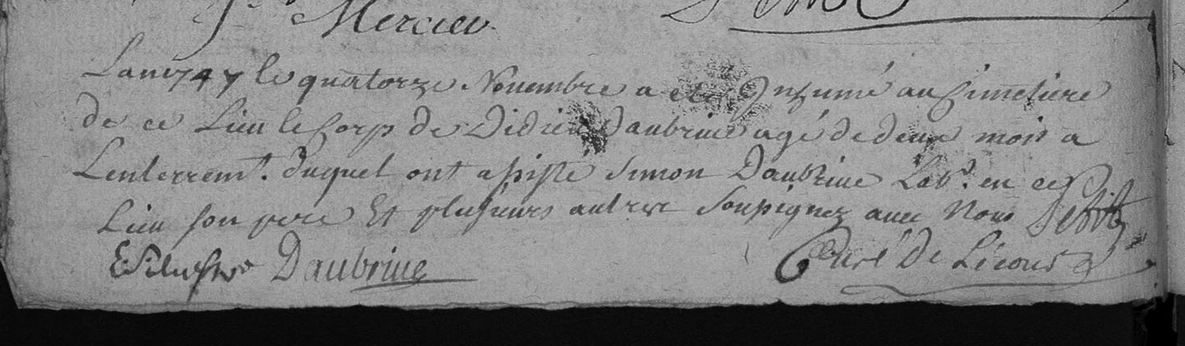 Mercier
Lan 1747 le quatorze Novembre a été Inhumé au Cimetiere
de ce Lieu le Corps de Didier Daubrive agé de deux mois a
Lenterremt. duquel ont assisté Simon Daubrive Labr. en ce
Lieu son pere Et plusieurs autres Soussignez avec Nous
Daubrive Curé De